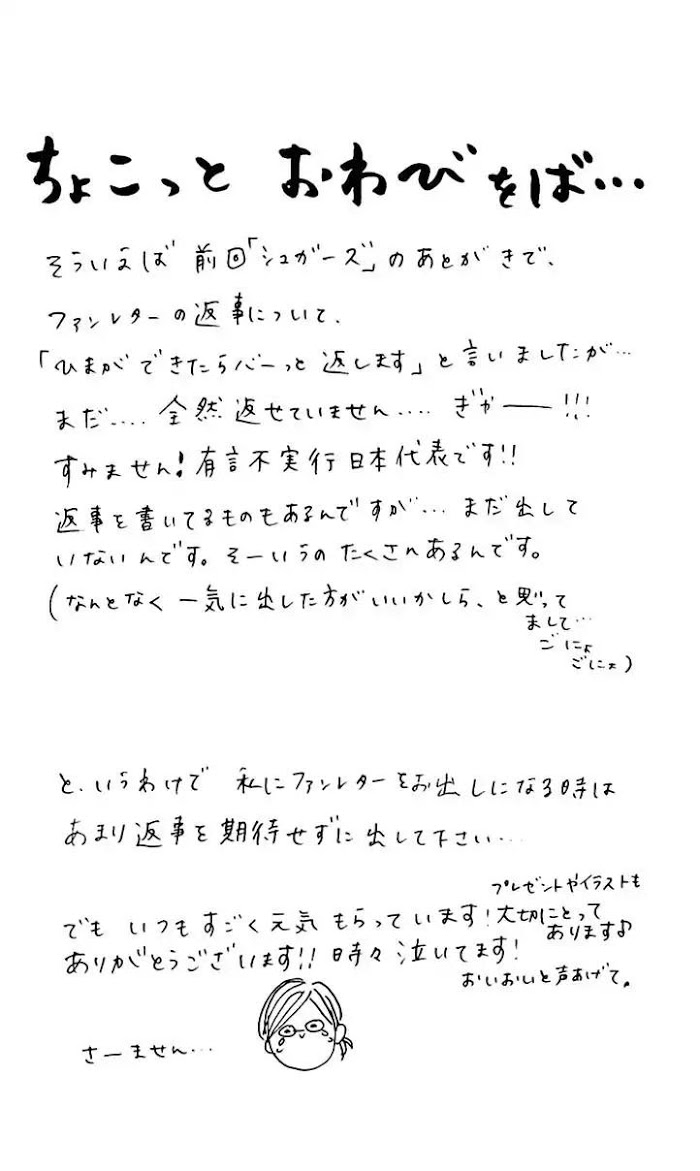 ちょこっと おわびをば…
そういえば 前回「シュガーズ」のあとがきで、
ファンレターの返事について、
「ひまができたらバーっと返します」と言いましたが…
まだ…. 全然返せていません…. ぎゃー!!!
すみません!有言不実行日本代表です!!
返事を書いてるものもあるんですが… まだ出して
いないんです。そーいうのたくさんあるんです。
(なんとなく 一気に出した方がいいかしら、と思って
まして…
ごにょ
ごにょ)
と、いうわけで 私にファンレターをお出しになる時は
あまり返事を期待せずに出して下さい…
でも いつもすごく元気もらっています!
プレゼントやイラストも
大切にとって
あります♪
ありがとうございます!! 時々泣いてます!
おいおいと声あげて。
さーません…